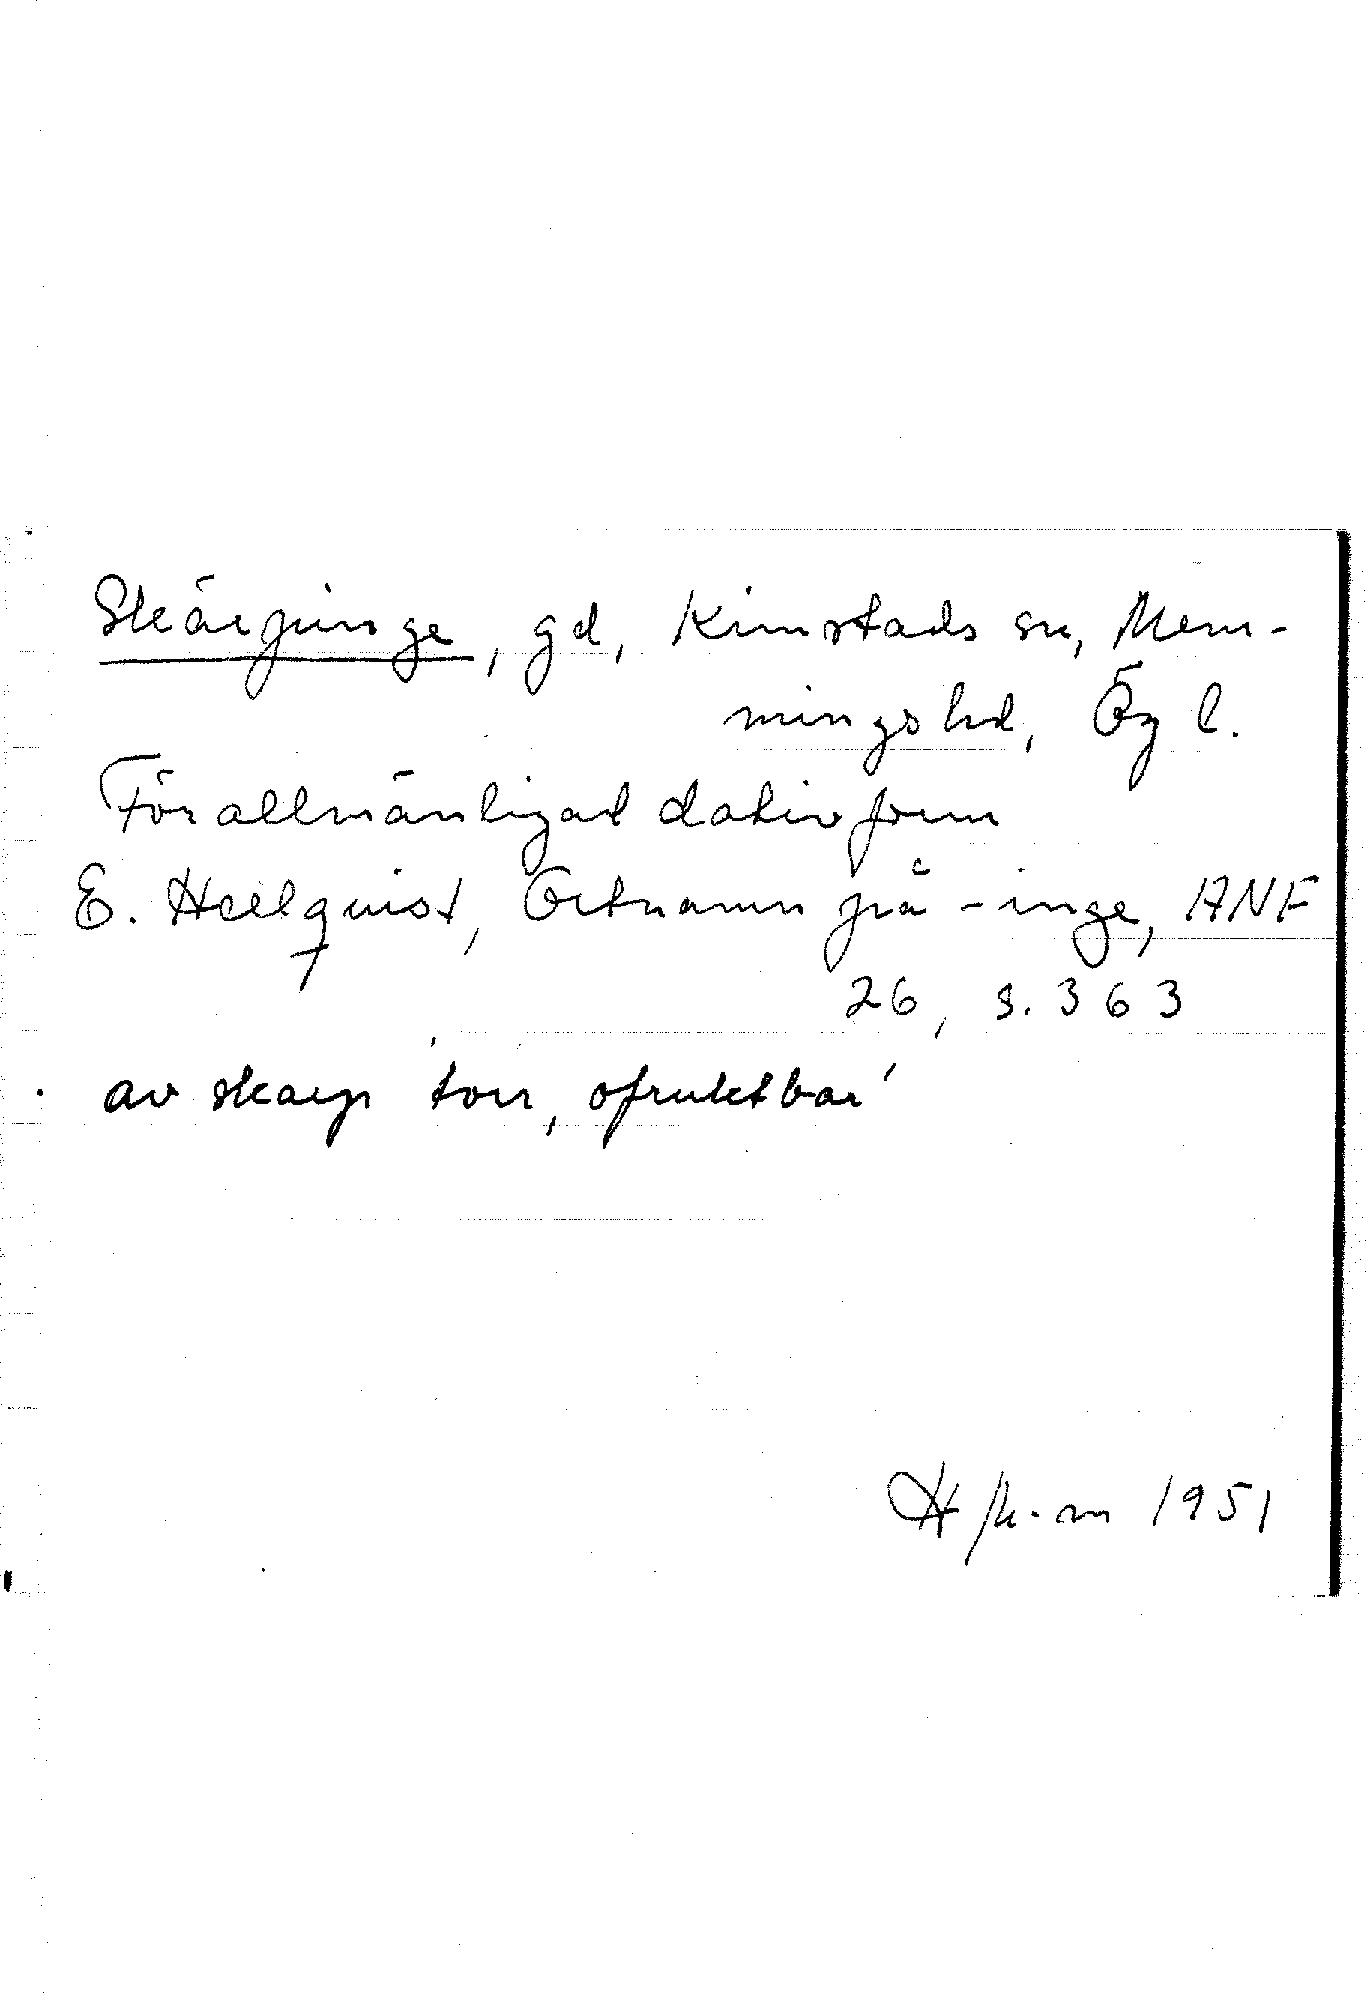 Skärpinge, gd, Kimstads sn, Mem-
mings hd, Ög l.
Förallmänligad dativform
E. Hellquist, Ortnamn på -inge, ANF
26, s. 363
av skarp 'torr, ofruktbar'
1951